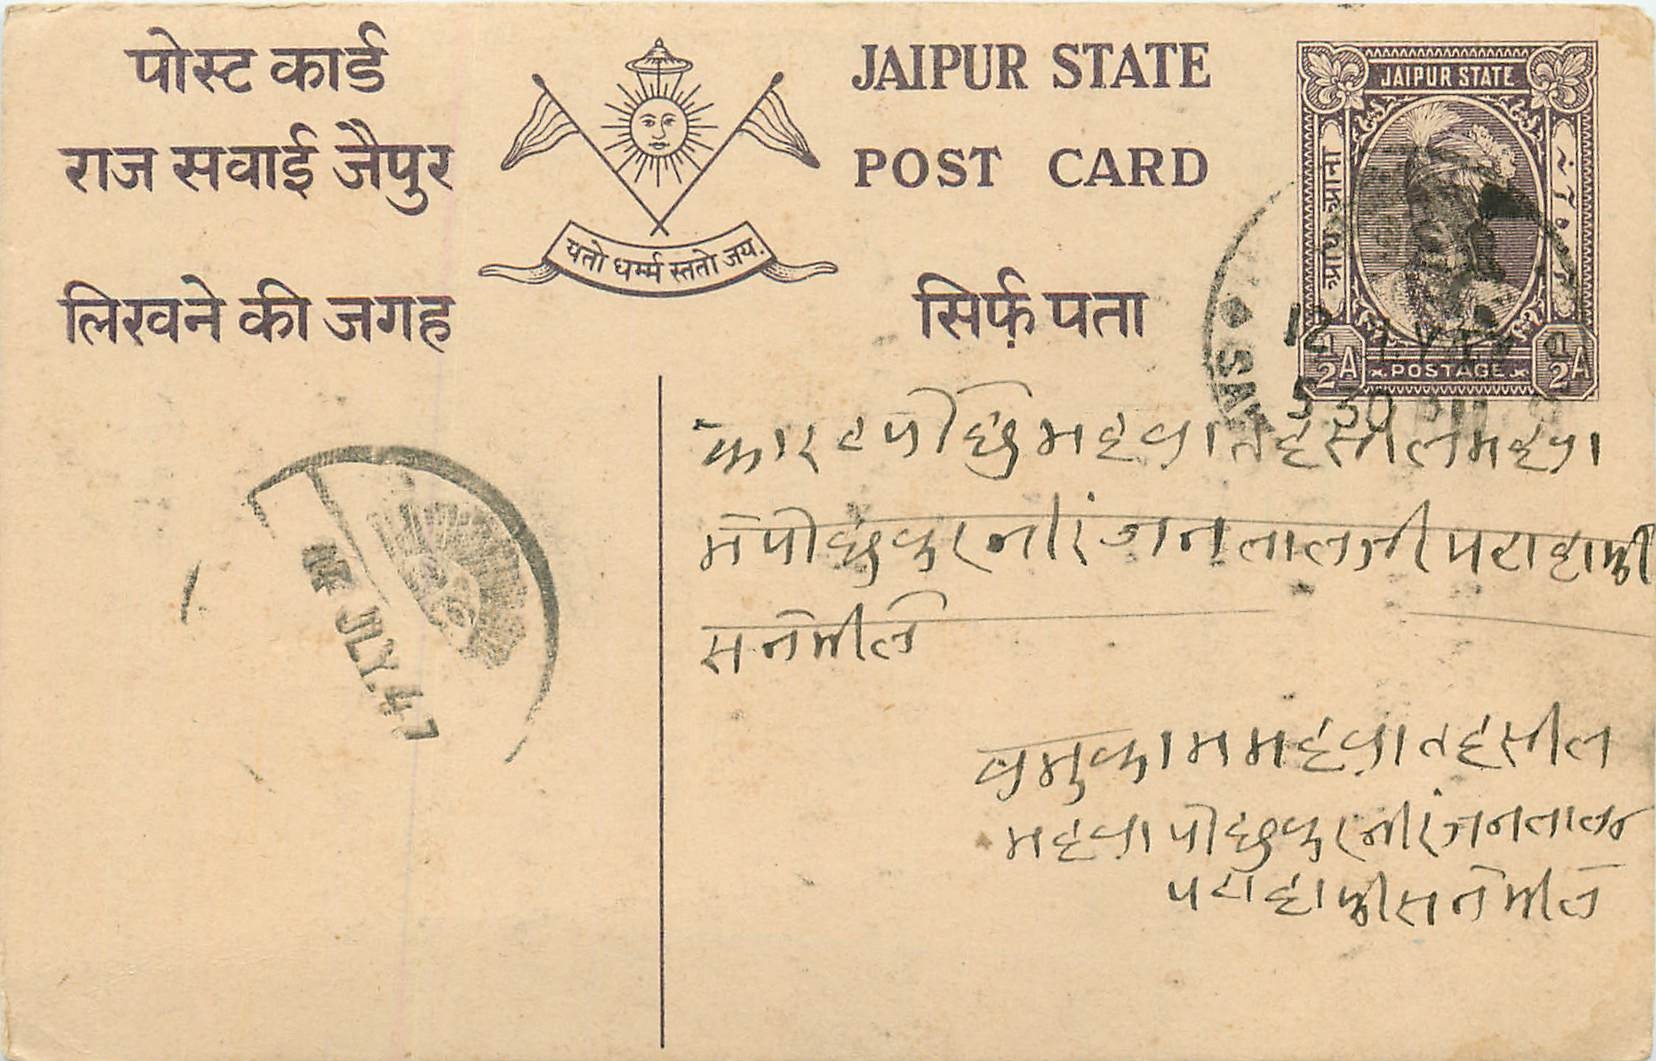 पोस्ट कार्ड
राज सवाई जैपुर
लिखने की जगह
यतो धर्म्म स्ततो जय.
JAIPUR STATE
POST CARD
सिर्फ़ पता
JAIPUR STATE
1/2 A POSTAGE 1/2 A
12
5 30 PM
JLY. 47
कारट पोछे महवा तहसील महवा
मे पोछकर नीरंजन लालजी
सने मीले
बमुकाम महवा तहसील
महवा पोछकर नीरंजनलाल
सने मीले